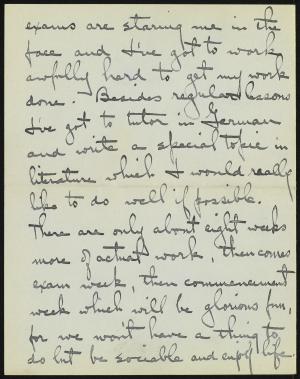 exams are staring me in the
face and I've got to work
awfully hard to get my work
done. Besides regular lessons
I've got to tutor in German
and write a special topic in
literature which I would really
like to do well if possible.
There are only about eight weeks
more of actual work, then comes
exam week, then commencement
week which will be glorious fun,
for we won't have a thing to
do but be sociable and enjoy life.